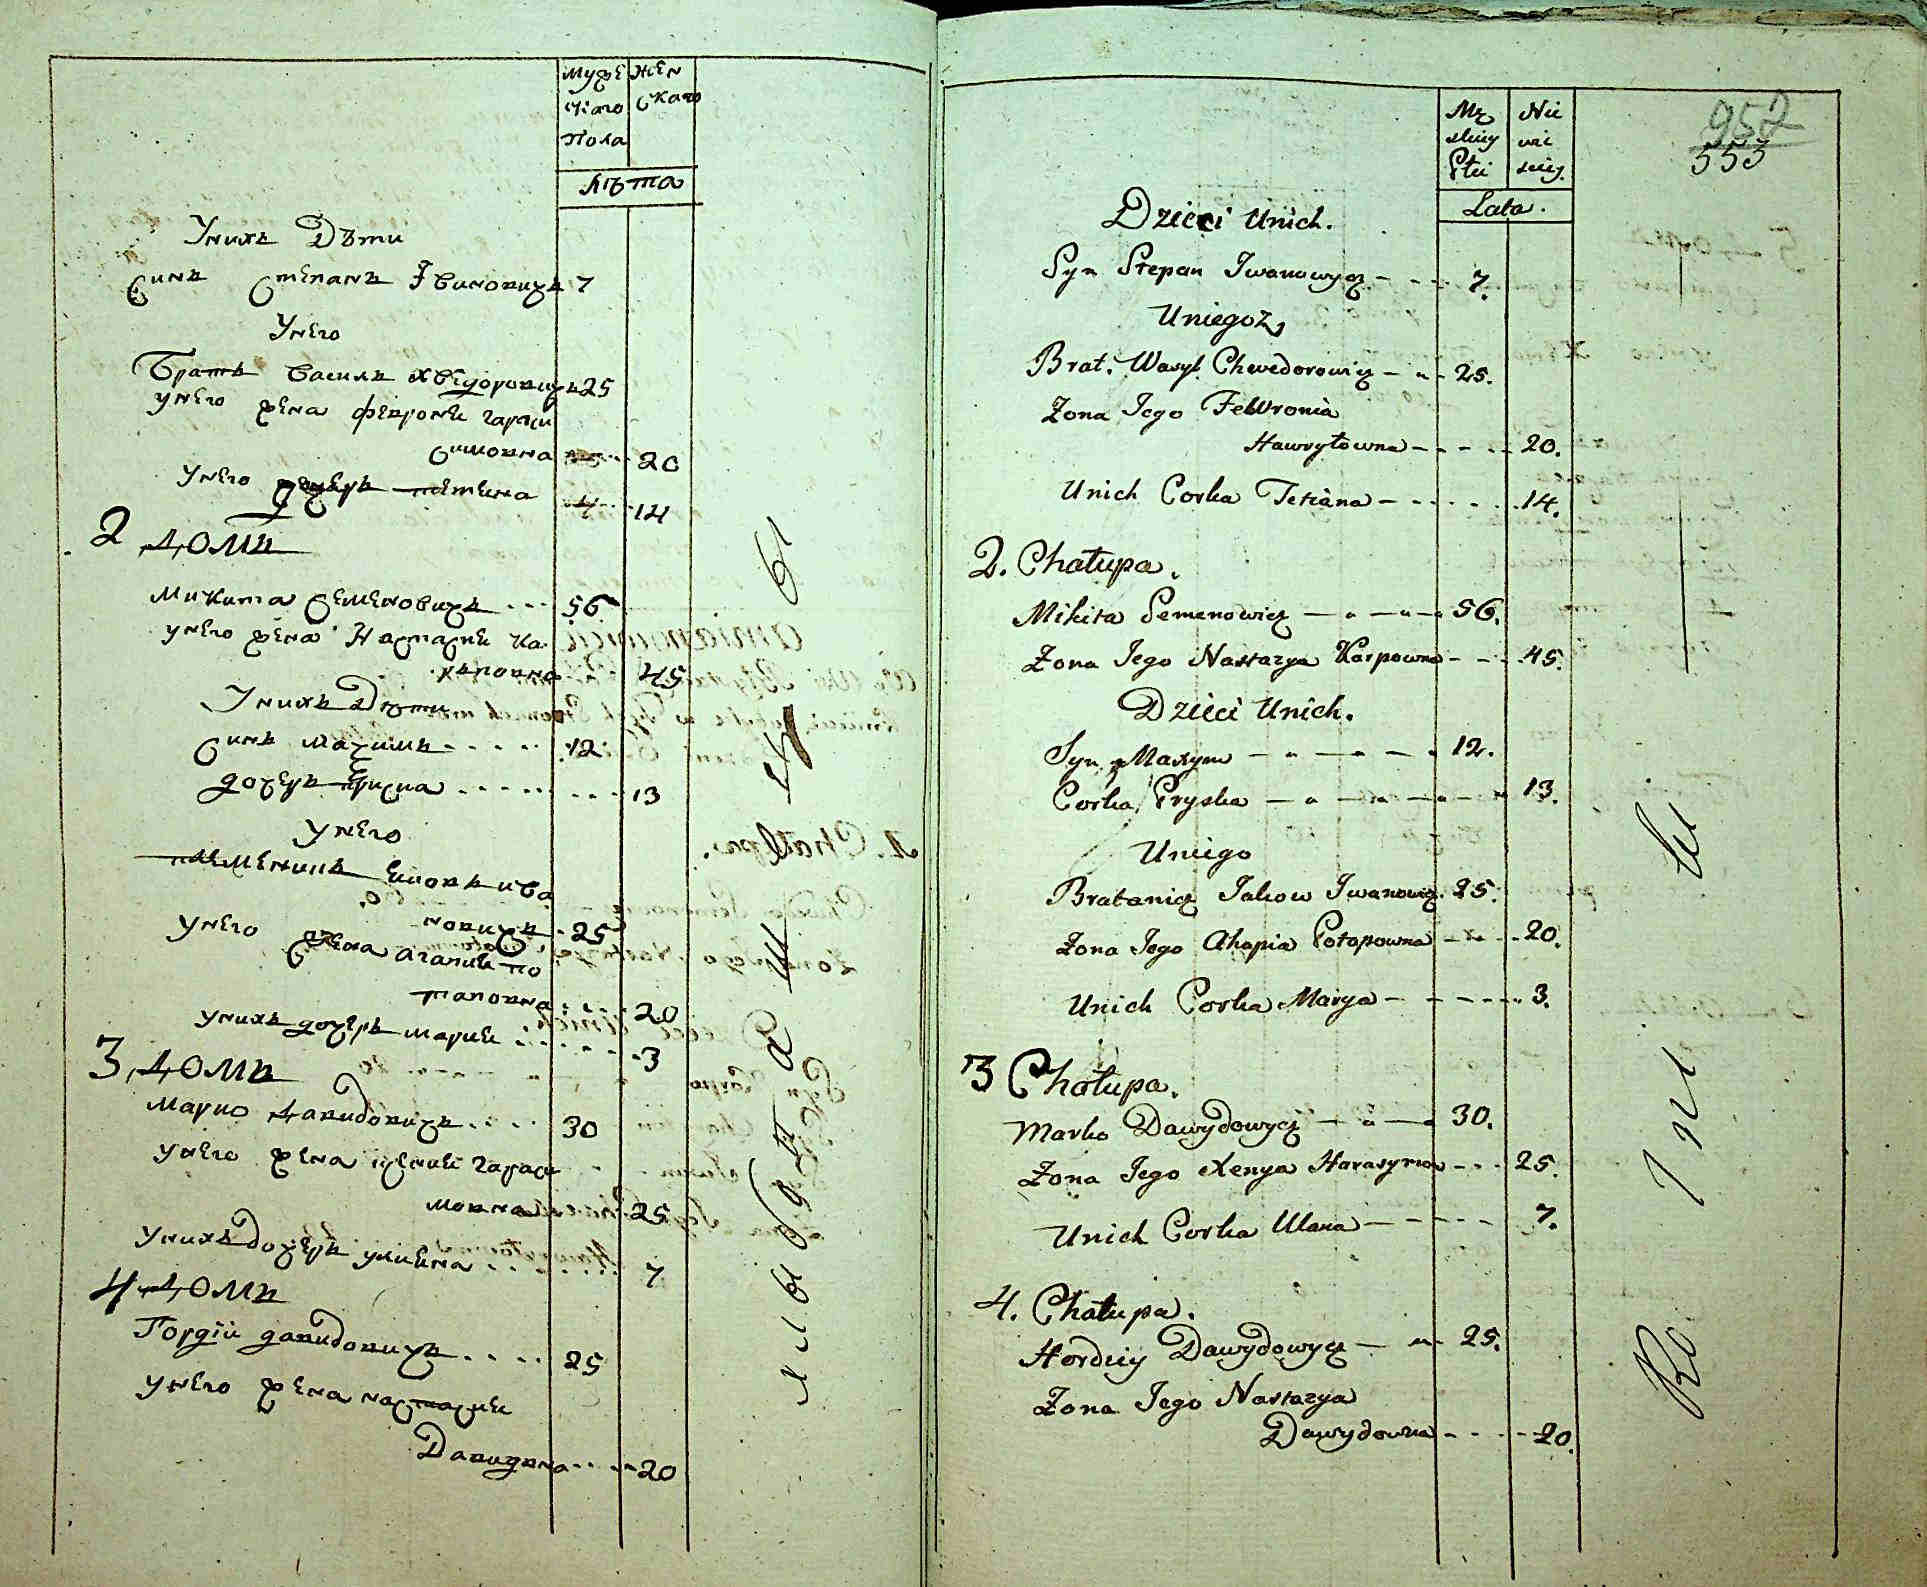 Муже
скаго
Пола
Жен
скаго
Лѣта
У нихъ Дѣти
Синъ Степанъ Івановичъ 7
У него
Братъ Василь Хведоровичъ 25
У него жена Феврониѣ
20
У него дочерь Тетяна 14
2 Домъ
Микита Семеновичъ 56
У него жена Настасиѣ Ка
рповна 45
У нихъ Дѣти
Синъ Максимъ 12
дочерь Приска 13
У него
племеникъ Ековъ Ива
новичъ 25
У него жена Агапиѣ По
таповна 20
У нихъ дочерь Мариѣ 3
3 Домъ
Марко Давидовичъ 30
У него жена Ксениѣ Гараси
мовна 25
У нихъ дочерь Улиѣна 7
4 Домъ
Гордій Давидовичъ 25
У него жена Настасиѣ
Давидовна 20
Mę
skiey
Płci
Nie
wie
sciey.
Lata.
952
553
Dzieci Unich.
Syn Stepan Iwanowycz 7.
Uniegoż,
Brat. Wasyl Chwedorowicz 25.
Żona Jego Fewronia
Hawryłowna 20.
Unich Corka Tetiana 14.
2. Chałupa.
Mikita Semenowicz 56.
Żona Jego Nastazya Karpowna 45.
Dzieci Unich.
Syn Maxym 12.
Corka Pryska 13.
Uniego
Bratanicz Jakow Iwanowicz 25.
Żona Jego Ahapia Potapowna 20.
Unich Corka Marya 3.
3 Chałupa.
Marko Dawydowycz 30.
Żona Jego Xenya Harasymow 25.
Unich Corka Ulana 7.
4. Chałupa.
Hordiey Dawydowycz 25.
Żona Jego Nastazya
Dawydowna 20.